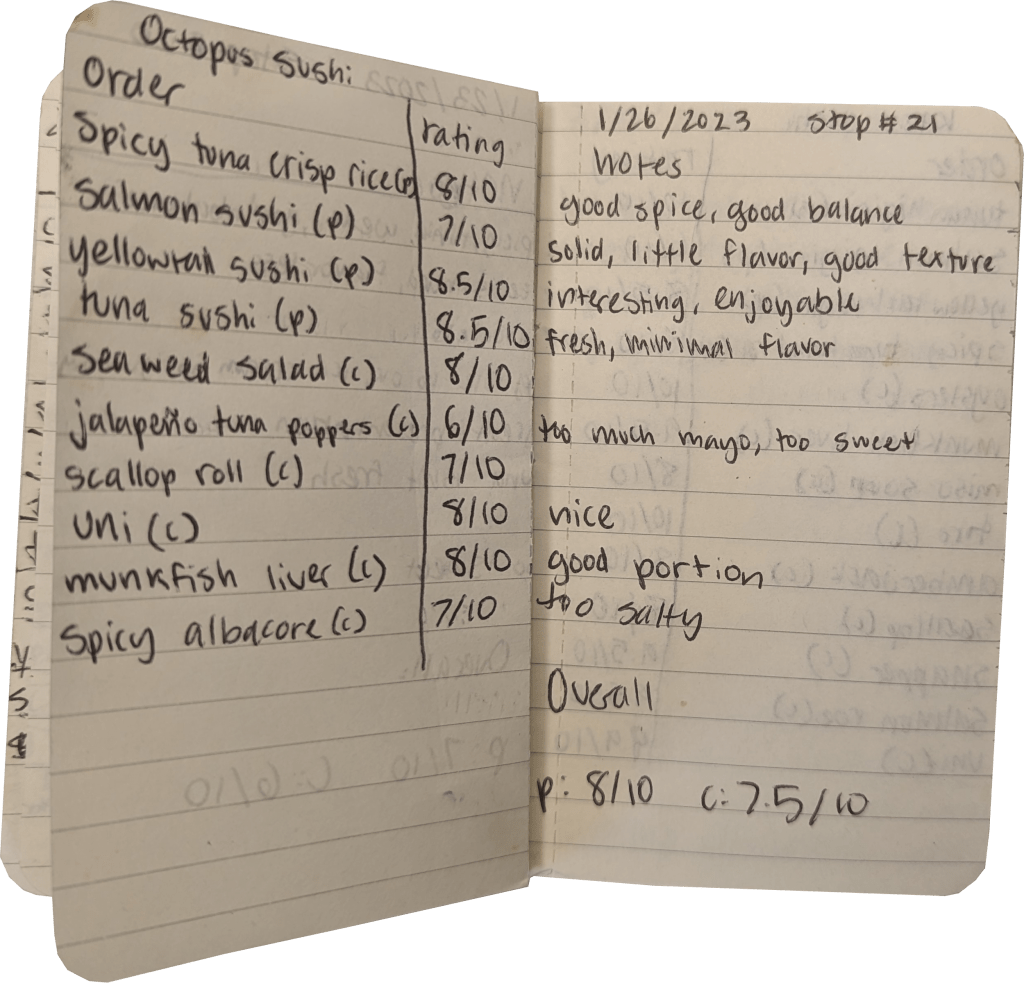 Octopus Sushi
Order rating
Spicy tuna crisp rice(p) 8/10
Salmon sushi (p) 7/10
yellowtail sushi (p) 8.5/10
tuna sushi (p) 8.5/10
Seaweed salad (c) 8/10
jalapeño tuna poppers (c) 6/10
scallop roll (c) 7/10
uni (c) 8/10
munkfish liver (c) 8/10
Spicy albacore (c) 7/10
1/26/2023 Stop # 21
notes
good spice, good balance
solid, little flavor, good texture
interesting, enjoyable
fresh, minimal flavor
too much mayo, too sweet
nice
good portion
too salty
Overall
p: 8/10 c: 7.5/10